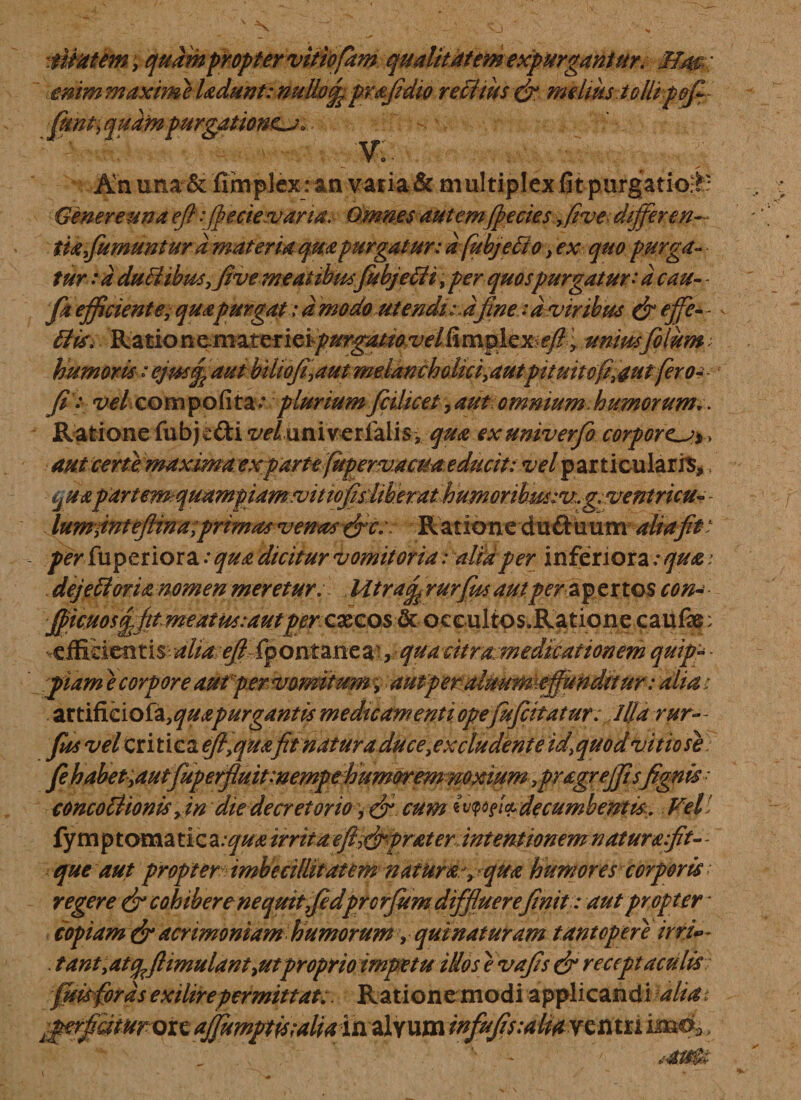 titatem, quàm propter vitiosam qualitatem expurgantur. Hac
enim maximè lædunt: nulloq́; præsidio rectius & melius tolli pos-
sunt, quàm purgatione.
V.
An una & simplex: an varia & multiplex sit purgatio?
Genere una est: specie varia. Omnes autem species, sive differen-
tiæ, sumuntur à materia quæ purgatur: à subjecto, ex quo purga-
tur: à ductibus, sive meatibus subjecti, per quos purgatur: à cau-
sa efficiente, quæ purgat: à modo utendi: à fine: à viribus & effe-
ctis. Ratione materiei purgatio vel simplex est, unius solùm
humoris: ejusq́; aut biliosi, aut melancholici, aut pituitosi, aut sero-
si: vel composita: plurium scilicet, aut omnium humorum.
Ratione subjecti vel universalis, quæ ex universo corpore,
aut certè maxima ex parte supervacua educit: vel particularis,
quæ partem quampiam vitiosis liberat humoribus: v. g. ventricu-
lum, intestina, primas venas &c. Ratione ductuum alia fit
per superiora: quæ dicitur vomitoria: alia per inferiora: quæ
dejectoriæ nomen meretur. Utraq́; rursus aut per apertos con-
spicuosq́; fit meatus: aut per cæcos & occultos. Ratione causæ
efficientis alia est spontanea, qua citra medicationem quip-
piam è corpore aut per vomitum, aut per aluum effunditur: alia
artificiosa, quæ purgantis medicamenti ope suscitatur. Illa rur-
sus vel critica est, quæ fit natura duce, excludente id, quod vitio sè
se habet, aut superfluit: nempe humorem noxium, prægressis signis
concoctionis, in die decretorio, & cum εὐφορίᾳ decumbentis. Vel
symptomatica: quæ irrita est, & præter intentionem naturæ: fit-
que aut propter imbecillitatem naturæ, quæ humores corporis
regere & cohibere nequit, sed prorsum diffluere sinit: aut propter
copiam & acrimoniam humorum, qui naturam tantopere irri-
tant, atq́; stimulant, ut proprio impetu illos è vasis & receptaculis
suis foras exilire permittat. Ratione modi applicandi alia
perficitur ore assumptis: alia in alvum infusis: alia ventri imo,
aut